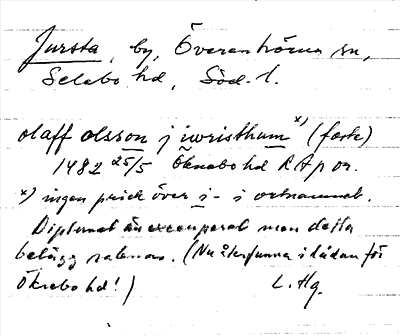 Jursta, by, Överenhörna sn,
Selebo hd, Söd. l.
olaff olsson j iwristhum x) (fasta)
1482 25/5 Öknebo hd RAp or.
x) ingen prick över i- i ortnamnet.
Diplomet är excerperat men detta
belägg saknas. (Nu återfunna i lådan för
Öknebo hd!) L. Hg.